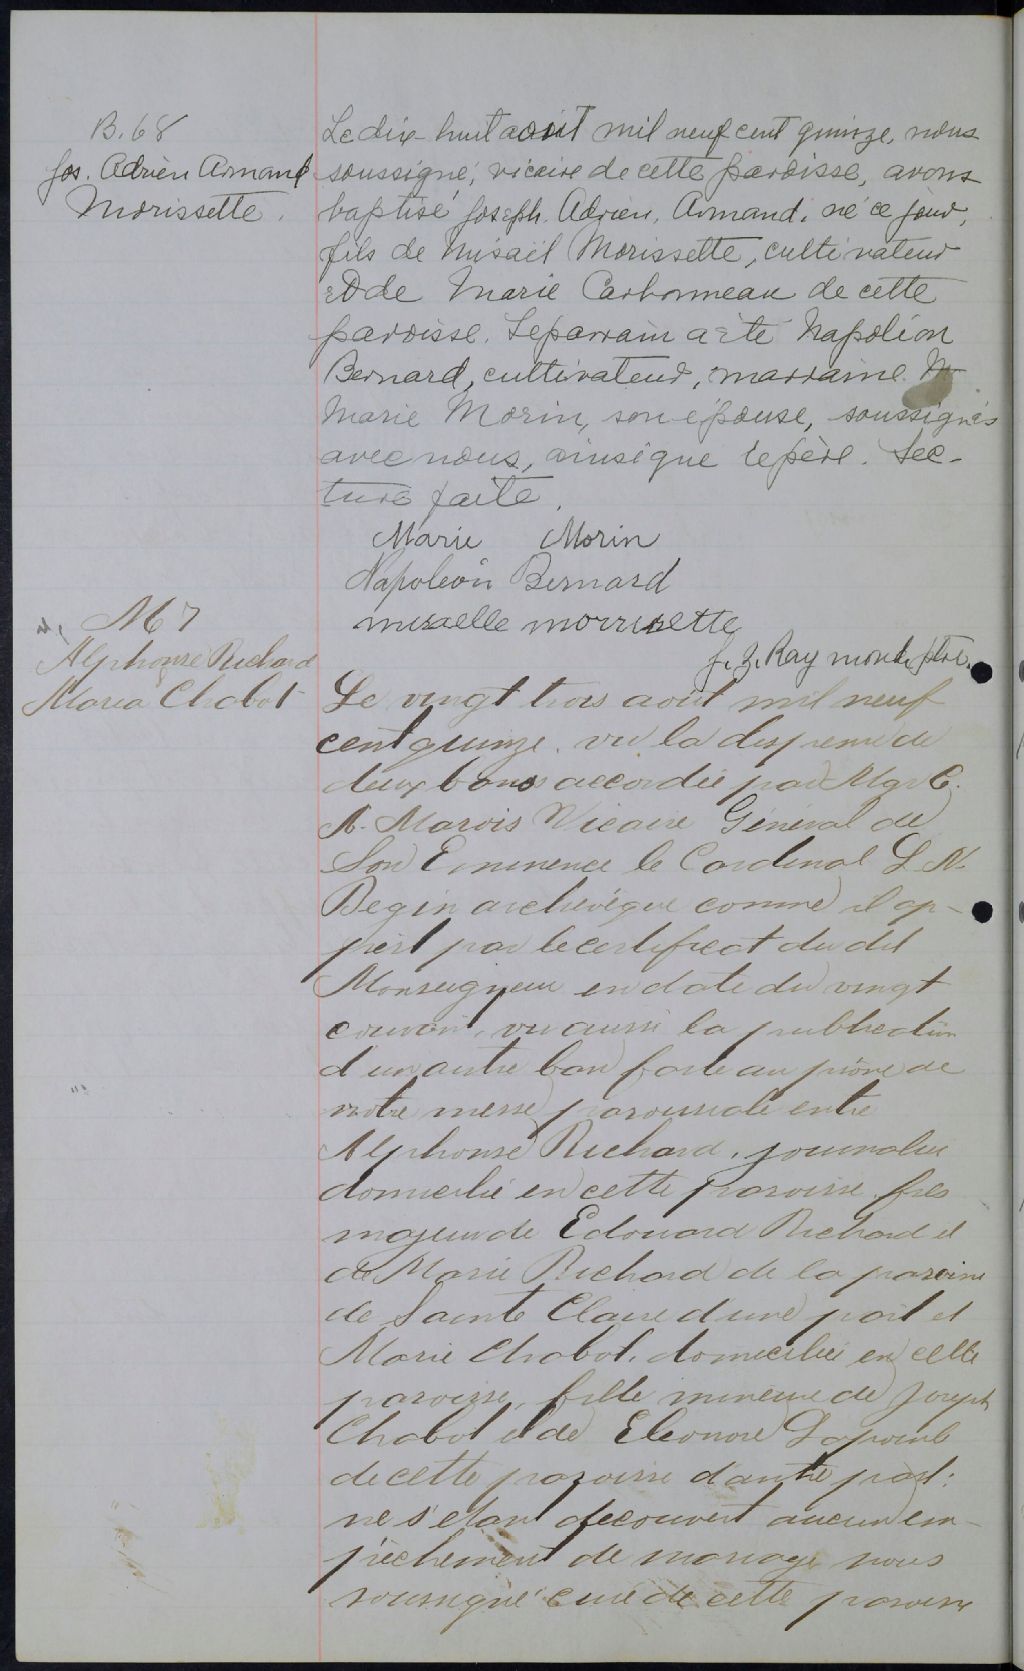 B. 68
Jos. Adrien Armand
Morissette.
Le dix huit août mil neuf cent quinze, nous
soussigné, vicaire de cette paroisse, avons
baptisé Joseph. Adrien. Armand. né ce jour,
fils de Misaël Morissette, cultivateur
et de Marie Carbonneau de cette
paroisse. Le parrain a été Napoléon
Bernard, cultivateur, marraine
Marie Morin, son épouse, soussignés
avec nous, ainsi que le père. Lec-
ture faite.
Marie Morin
Napoleon Bernard
misaelle morrissette
J. Z. Raymond, ptre.
M 7
Alphonse Richard
Maria Chabot
Le vingt trois août mil neuf
cent quinze, vu la dispense de
deux bans accordée par Mgr C.
A. Marois Vicaire Général de
Son Eminence le Cardinal L. N.
Begin archevêque comme il ap-
pert par le certificat du dit
Monseigneur en date du vingt
courant, vu aussi la publication
d'un autre ban faite au prône de
notre messe paroissiale entre
Alphonse Richard, journalier
domicilié en cette paroisse, fils
majeur de Edouard Richard et
de Marie Richard de la paroisse
de Sainte Claire d'une part et
Marie Chabot, domiciliée en cette
paroisse, fille mineure de Joseph
Chabot et de Eleonore Lapointe
de cette paroisse d'autre part:
ne s'étant découvert aucun em-
pêchement de mariage nous
soussigné curé de cette paroisse